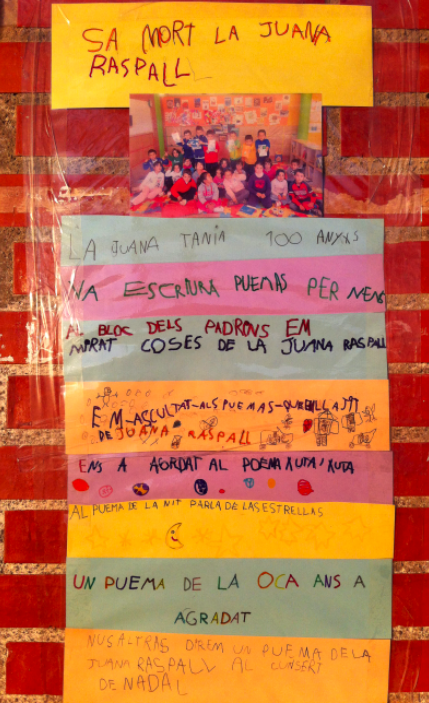 SA MORT LA JUANA
RASPALL
LA JUANA TANIA 100 ANYXS
VA ESCRIURA PUEMAS PER NENS
AL BLOC DELS PADRONS EM
MIRAT COSES DE LA JUANA RASPALL
EM-ASCULTAT-ALS PUEMAS-QUE
DE JUANA RASPALL
ENS A AGRDAT AL POEMA XUTA, XUTA
AL PUEMA DE LA NIT PARLA DE LAS ESTRELLAS
UN PUEMA DE LA OCA ANS A
AGRADAT
NUSALTRAS DIREM UN PUEMA DE LA
JUANA RASPALL AL CUNSERT
DE NADAL